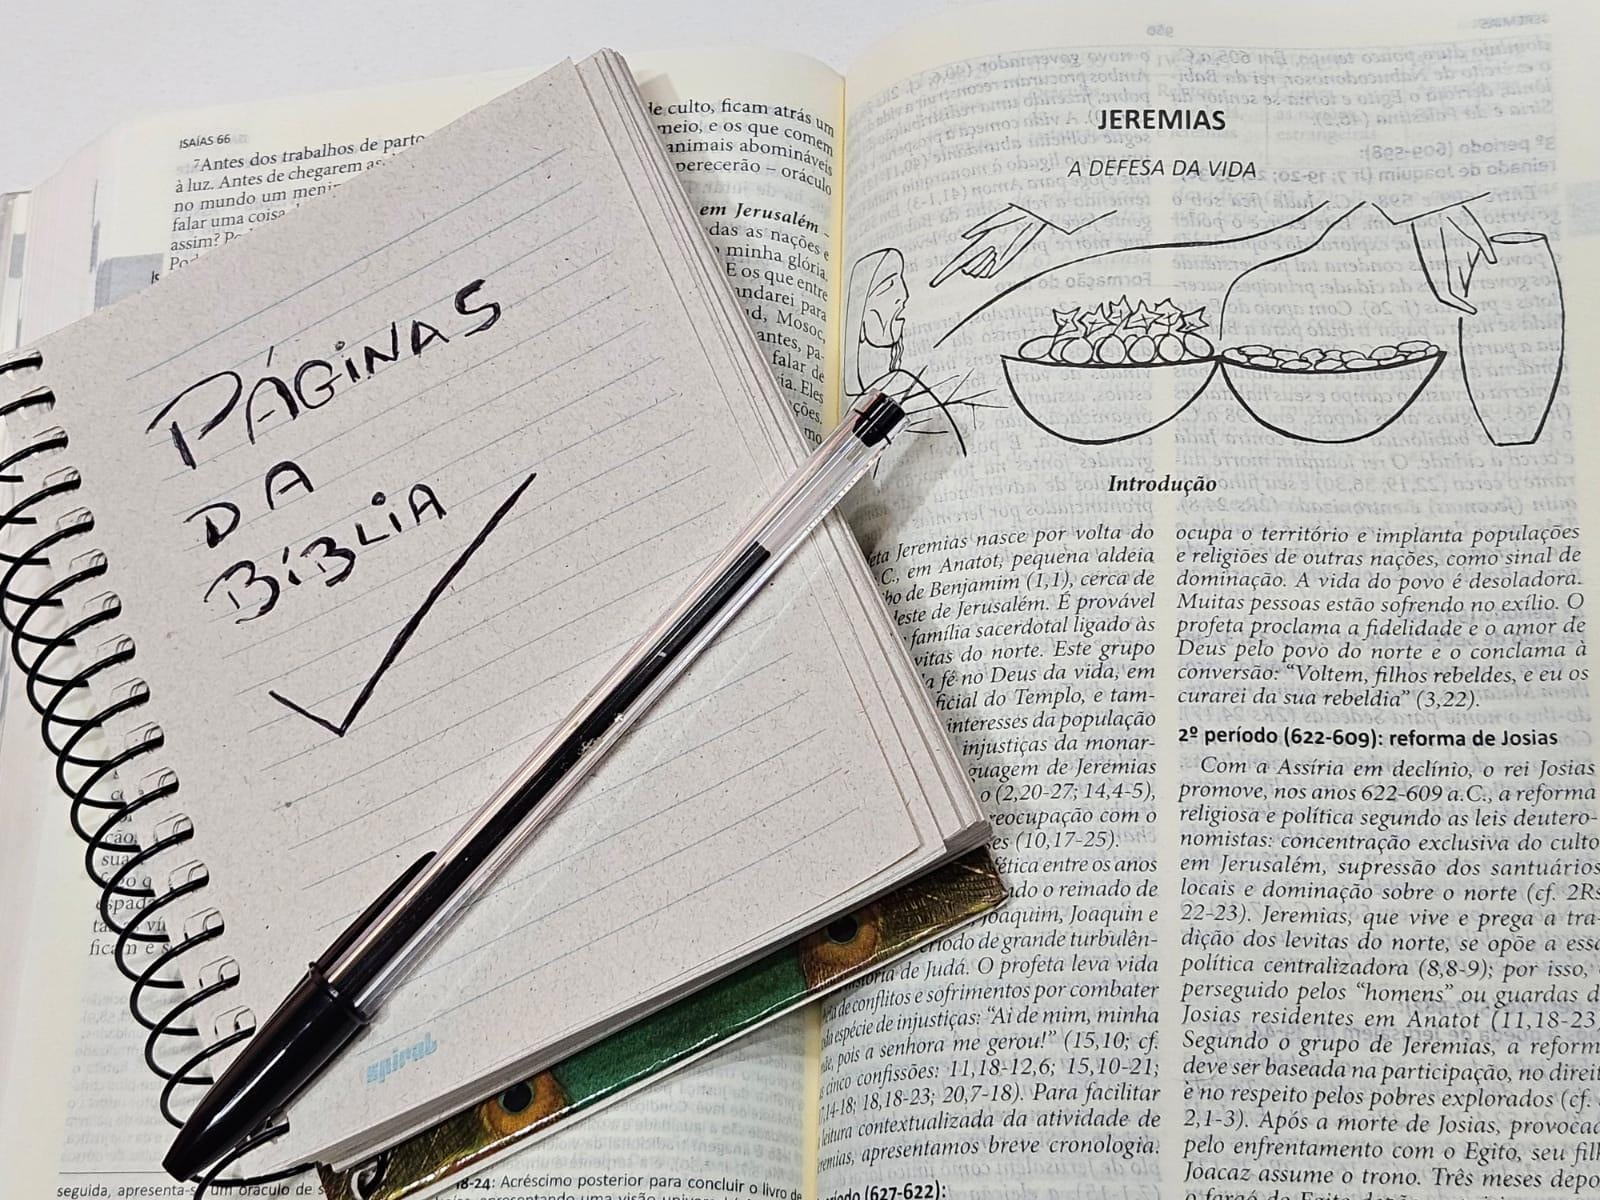 PÁGINAS
DA
BÍBLIA
ISAÍAS 66
7Antes dos trabalhos de parto
à luz. Antes de chegarem as
no mundo um menin
falar uma coisa
assim?
de culto, ficam atrás um
meio, e os que comem
animais abomináveis
perecerão – oráculo
em Jerusalém –
das as nações e
minha glória.
E os que entre
andarei para
Mosoc,
antes, pa-
falar de
Eles
ções.
mo
JEREMIAS
A DEFESA DA VIDA
Introdução
eta Jeremias nasce por volta do
C., em Anatot, pequena aldeia
bo de Benjamim (1,1), cerca de
deste de Jerusalém. É provável
família sacerdotal ligado às
vitas do norte. Este grupo
a fé no Deus da vida, em
ficial do Templo, e tam-
interesses da população
injustiças da monar-
guagem de Jeremias
o (2,20-27; 14,4-5),
reocupação com o
es (10,17-25).
fética entre os anos
do o reinado de
Joaquim, Joaquin e
eríodo de grande turbulên-
história de Judá. O profeta leva vida
de conflitos e sofrimentos por combater
espécie de injustiças: "Ai de mim, minha
mãe, pois a senhora me gerou!" (15,10; cf.
s cinco confissões: 11,18-12,6; 15,10-21;
17,14-18; 18,18-23; 20,7-18). Para facilitar
leitura contextualizada da atividade de
eremias, apresentamos breve cronologia.
período (627-622):
ocupa o território e implanta populações
e religiões de outras nações, como sinal de
dominação. A vida do povo é desoladora.
Muitas pessoas estão sofrendo no exílio. O
profeta proclama a fidelidade e o amor de
Deus pelo povo do norte e o conclama à
conversão: "Voltem, filhos rebeldes, e eu os
curarei da sua rebeldia" (3,22).
2º período (622-609): reforma de Josias
Com a Assíria em declínio, o rei Josias
promove, nos anos 622-609 a.C., a reforma
religiosa e política segundo as leis deutero-
nomistas: concentração exclusiva do culto
em Jerusalém, supressão dos santuários
locais e dominação sobre o norte (cf. 2Rs
22-23). Jeremias, que vive e prega a tra-
dição dos levitas do norte, se opõe a essa
política centralizadora (8,8-9); por isso,
perseguido pelos "homens" ou guardas d
Josias residentes em Anatot (11,18-23
Segundo o grupo de Jeremias, a reform
deve ser baseada na participação, no direit
e no respeito pelos pobres explorados (cf.
2,1-3). Após a morte de Josias, provocad
pelo enfrentamento com o Egito, seu filh
Joacaz assume o trono. Três meses depo
seguida, apresenta-s um oráculo de s
18-24: Acréscimo posterior para concluir o livro de